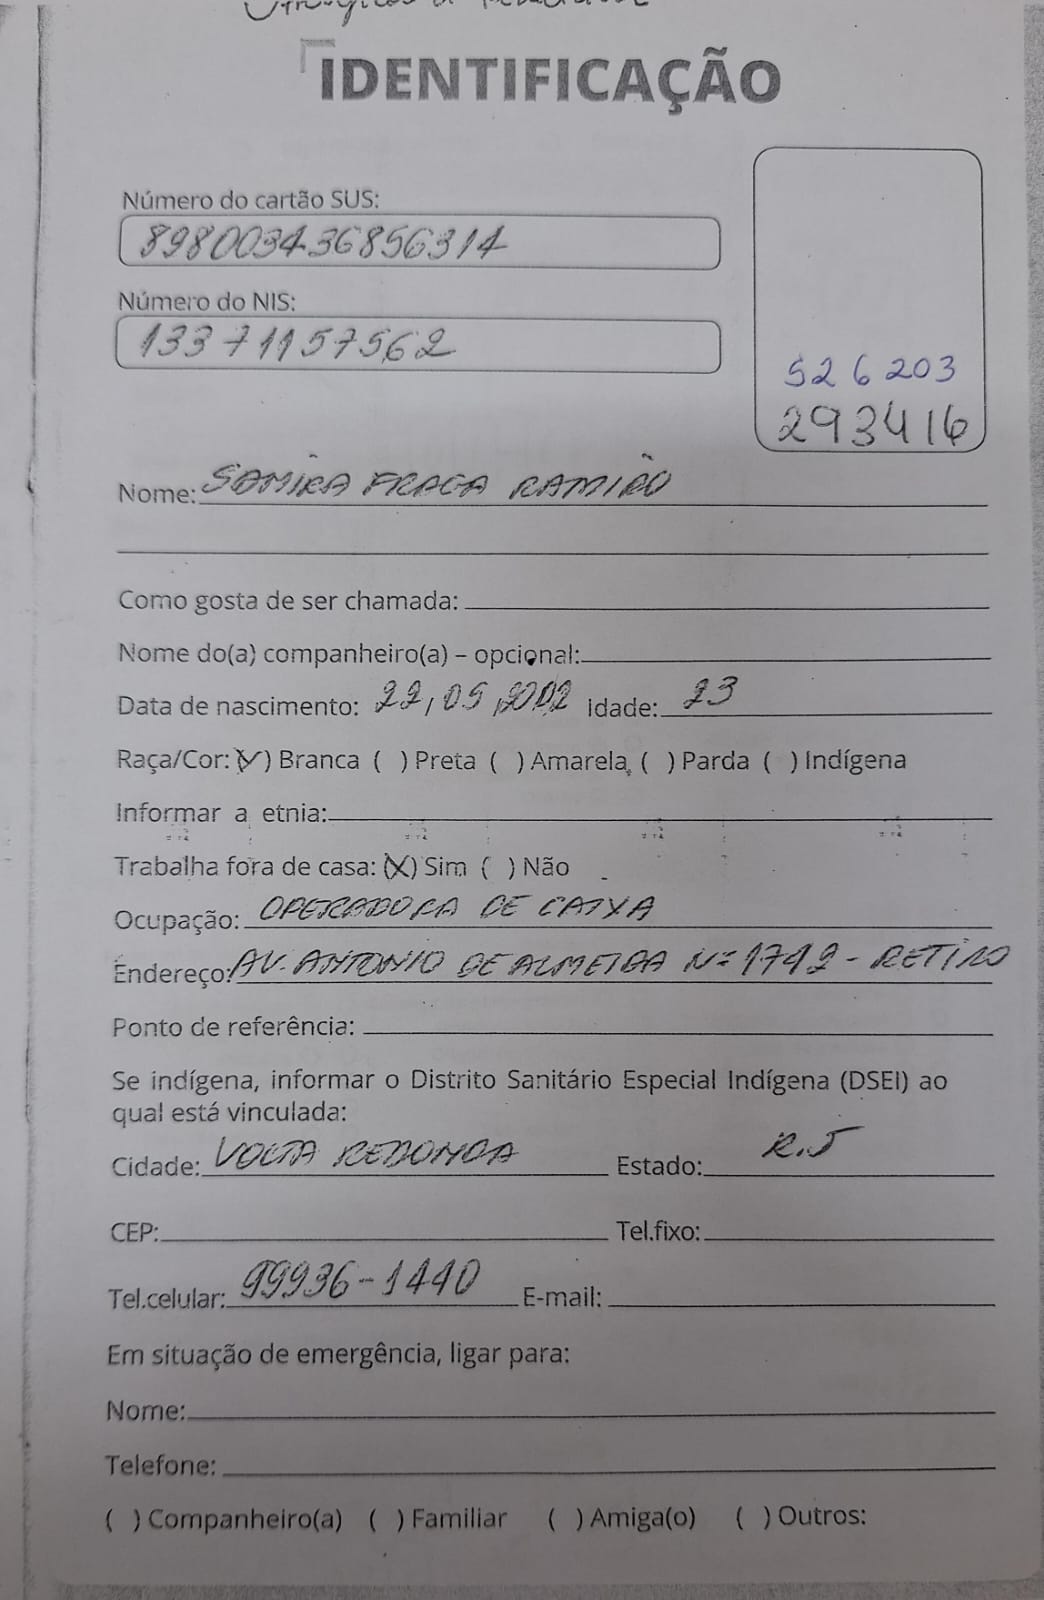 IDENTIFICAÇÃO
Número do cartão SUS:
898003436856314
Número do NIS:
13371157562
526203
293416
Nome: SAMIRA FRAGA RAMIRO
Como gosta de ser chamada:
Nome do(a) companheiro(a) – opcional:
Data de nascimento: 22/05/2002 Idade: 23
Raça/Cor: (X) Branca ( ) Preta ( ) Amarela ( ) Parda ( ) Indígena
Informar a etnia:
Trabalha fora de casa: (X) Sim ( ) Não
Ocupação: OPERADORA DE CAIXA
Endereço: AV. ANTONIO DE ALMEIDA Nº 1792 - RETIRO
Ponto de referência:
Se indígena, informar o Distrito Sanitário Especial Indígena (DSEI) ao
qual está vinculada:
Cidade: VOLTA REDONDA Estado: R.J
CEP: Tel.fixo:
Tel.celular: 99936-1440 E-mail:
Em situação de emergência, ligar para:
Nome:
Telefone:
( ) Companheiro(a) ( ) Familiar ( ) Amiga(o) ( ) Outros: